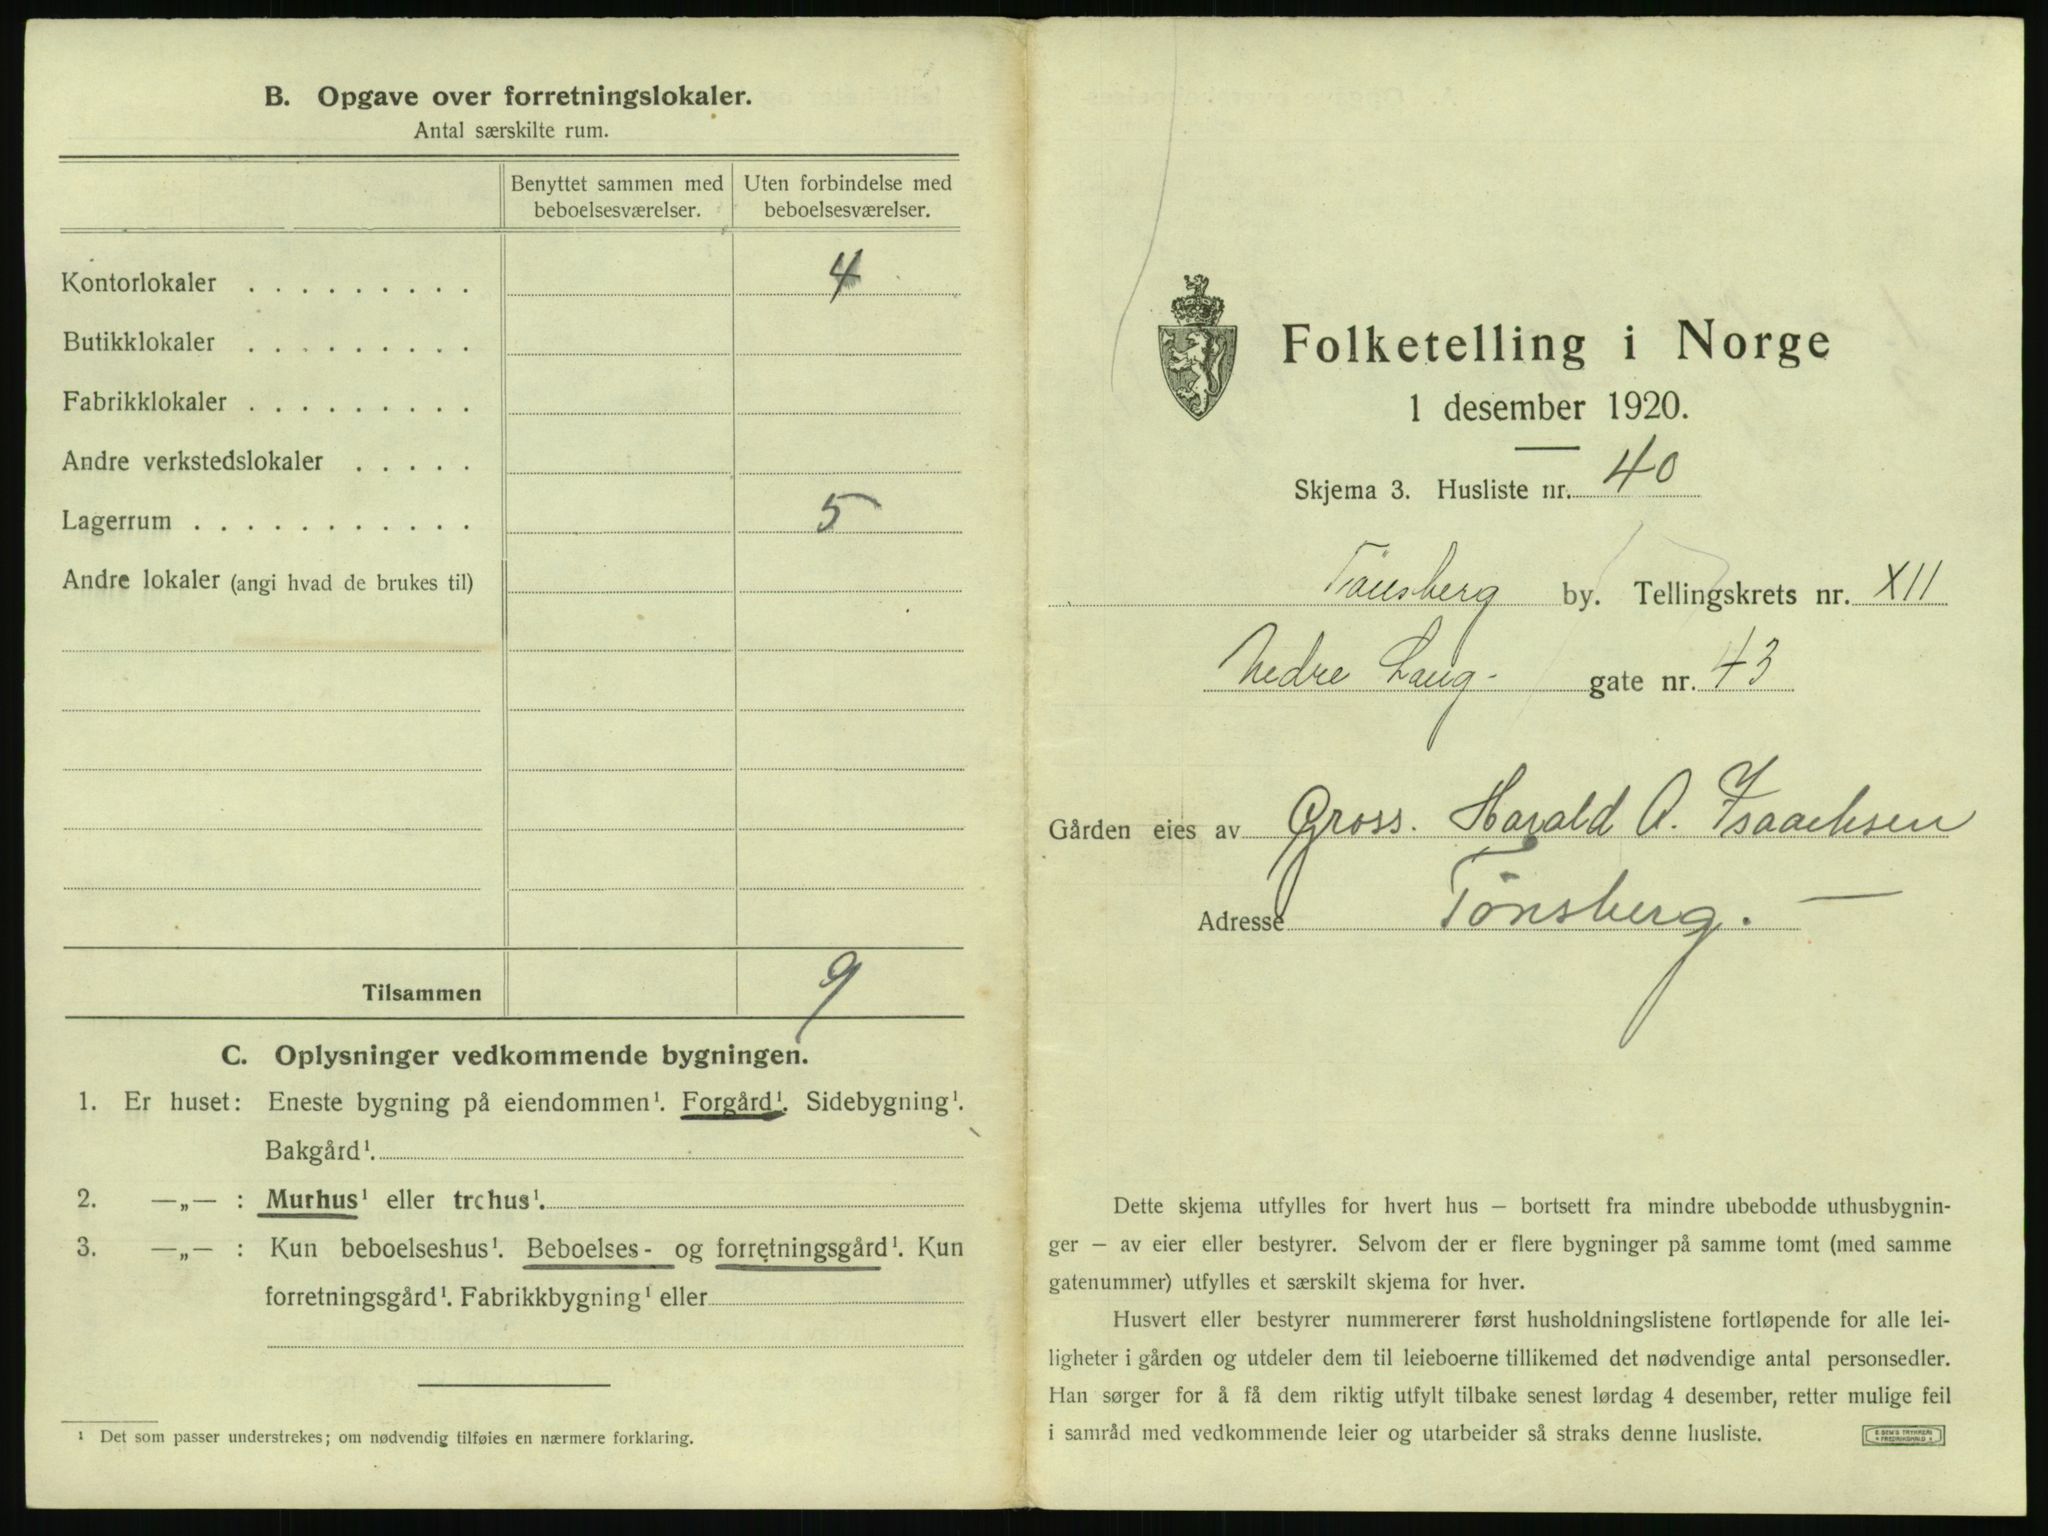 B. Opgave over forretningslokaler.
Antal særskilte rum.
Benyttet sammen med beboelsesværelser.
Uten forbindelse med beboelsesværelser.
Kontorlokaler . . . . . . . . . 4
Butikklokaler . . . . . . . . .
Fabrikklokaler . . . . . . . . .
Andre verkstedslokaler . . . . .
Lagerrum . . . . . . . . . . . 5
Andre lokaler (angi hvad de brukes til)
Tilsammen 9
C. Oplysninger vedkommende bygningen.
1. Er huset: Eneste bygning på eiendommen¹. Forgård¹. Sidebygning¹.
Bakgård¹.
2. —„— : Murhus¹ eller trehus¹.
3. —„— : Kun beboelseshus¹. Beboelses- og forretningsgård¹. Kun
forretningsgård¹. Fabrikkbygning¹ eller
¹ Det som passer understrekes; om nødvendig tilføies en nærmere forklaring.
Folketelling i Norge
1 desember 1920.
Skjema 3. Husliste nr. 40
Tönsberg by. Tellingskrets nr. XII
Nedre Lang- gate nr. 43
Gården eies av Gross. Harald A. Isaachsen
Adresse Tönsberg. —
Dette skjema utfylles for hvert hus — bortsett fra mindre ubebodde uthusbygnin-
ger — av eier eller bestyrer. Selvom der er flere bygninger på samme tomt (med samme
gatenummer) utfylles et særskilt skjema for hver.
Husvert eller bestyrer nummererer først husholdningslistene fortløpende for alle lei-
ligheter i gården og utdeler dem til leieboerne tillikemed det nødvendige antal personsedler.
Han sørger for å få dem riktig utfylt tilbake senest lørdag 4 desember, retter mulige feil
i samråd med vedkommende leier og utarbeider så straks denne husliste.
E. SEM'S TRYKKERI
FREDRIKSHALD